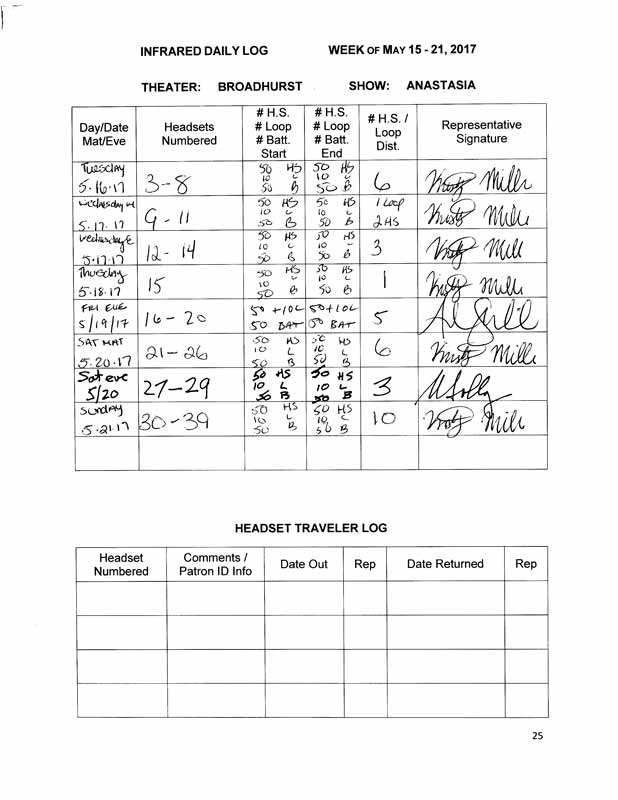 INFRARED DAILY LOG WEEK OF MAY 15 - 21, 2017
THEATER: BROADHURST SHOW: ANASTASIA
Day/Date Mat/Eve Headsets Numbered # H.S. # Loop # Batt. Start # H.S. # Loop # Batt. End # H.S. / Loop Dist. Representative Signature
Tuesday 5.16.17 3-8 50 HS 10 L 50 B 50 HS 10 L 50 B 6 Kristy Miller
Wednesday M 5.17.17 9-11 50 HS 10 L 50 B 50 HS 10 L 50 B 1 Loop 2 HS Kristy Miller
Wednesday E 5.17.17 12-14 50 HS 10 L 50 B 50 HS 10 L 50 B 3 Kristy Miller
Thursday 5.18.17 15 50 HS 10 L 50 B 50 HS 10 L 50 B 1 Kristy Miller
FRI EVE 5/19/17 16-20 50 +10L 50 BAT 50+10L 50 BAT 5
SAT MAT 5.20.17 21-26 50 HS 10 L 50 B 50 HS 10 L 50 B 6 Kristy Miller
Sat eve 5/20 27-29 50 HS 10 L 50 B 50 HS 10 L 50 B 3
Sunday 5.21.17 30-39 50 HS 10 L 50 B 50 HS 10 L 50 B 10 Kristy Miller
HEADSET TRAVELER LOG
Headset Numbered Comments / Patron ID Info Date Out Rep Date Returned Rep
25